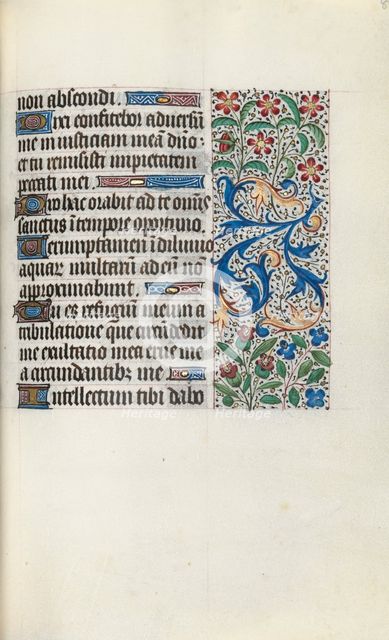 non abscondi.
Dixi confitebor adversū
me iniusticiam meā dn̄o
et tu remisisti impietatem
peccati mei.
Pro hac orabit ad te om̄is
sanctus ī tempore oportuno.
Verumptamen ī diluvio
aquar multarū ad eū nō
approximabunt.
Tu es refugiū meum a
tribulatione que circūdedit
me exultatio mea erue me
a circundantibz me
Intellectum tibi dabo
Heritage
Heritage